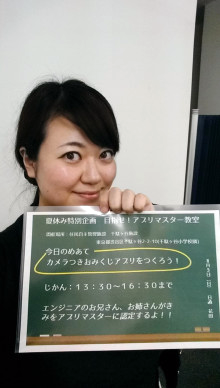 夏休み特別企画 目指せ！アプリマスター教室
今日のめあて
カメラつきおみくじアプリをつくろう！
じかん：１３：３０～１６：３０
エンジニアのお兄さん、お姉さんがき
みをアプリマスターに認定するよ！！